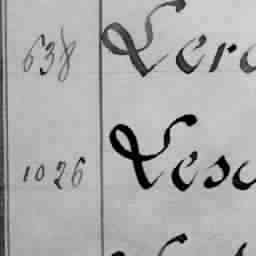 638 Lero
1026 Lesc